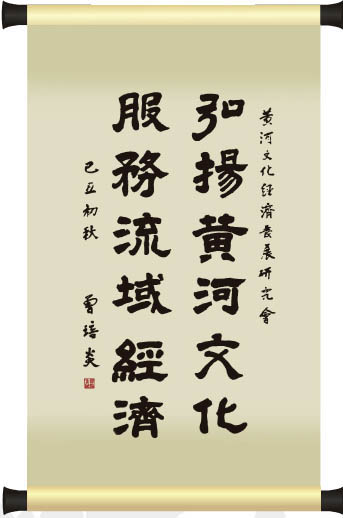 黄河文化經濟發展研究會
弘揚黄河文化
服務流域經濟
己丑初秋 曾培炎